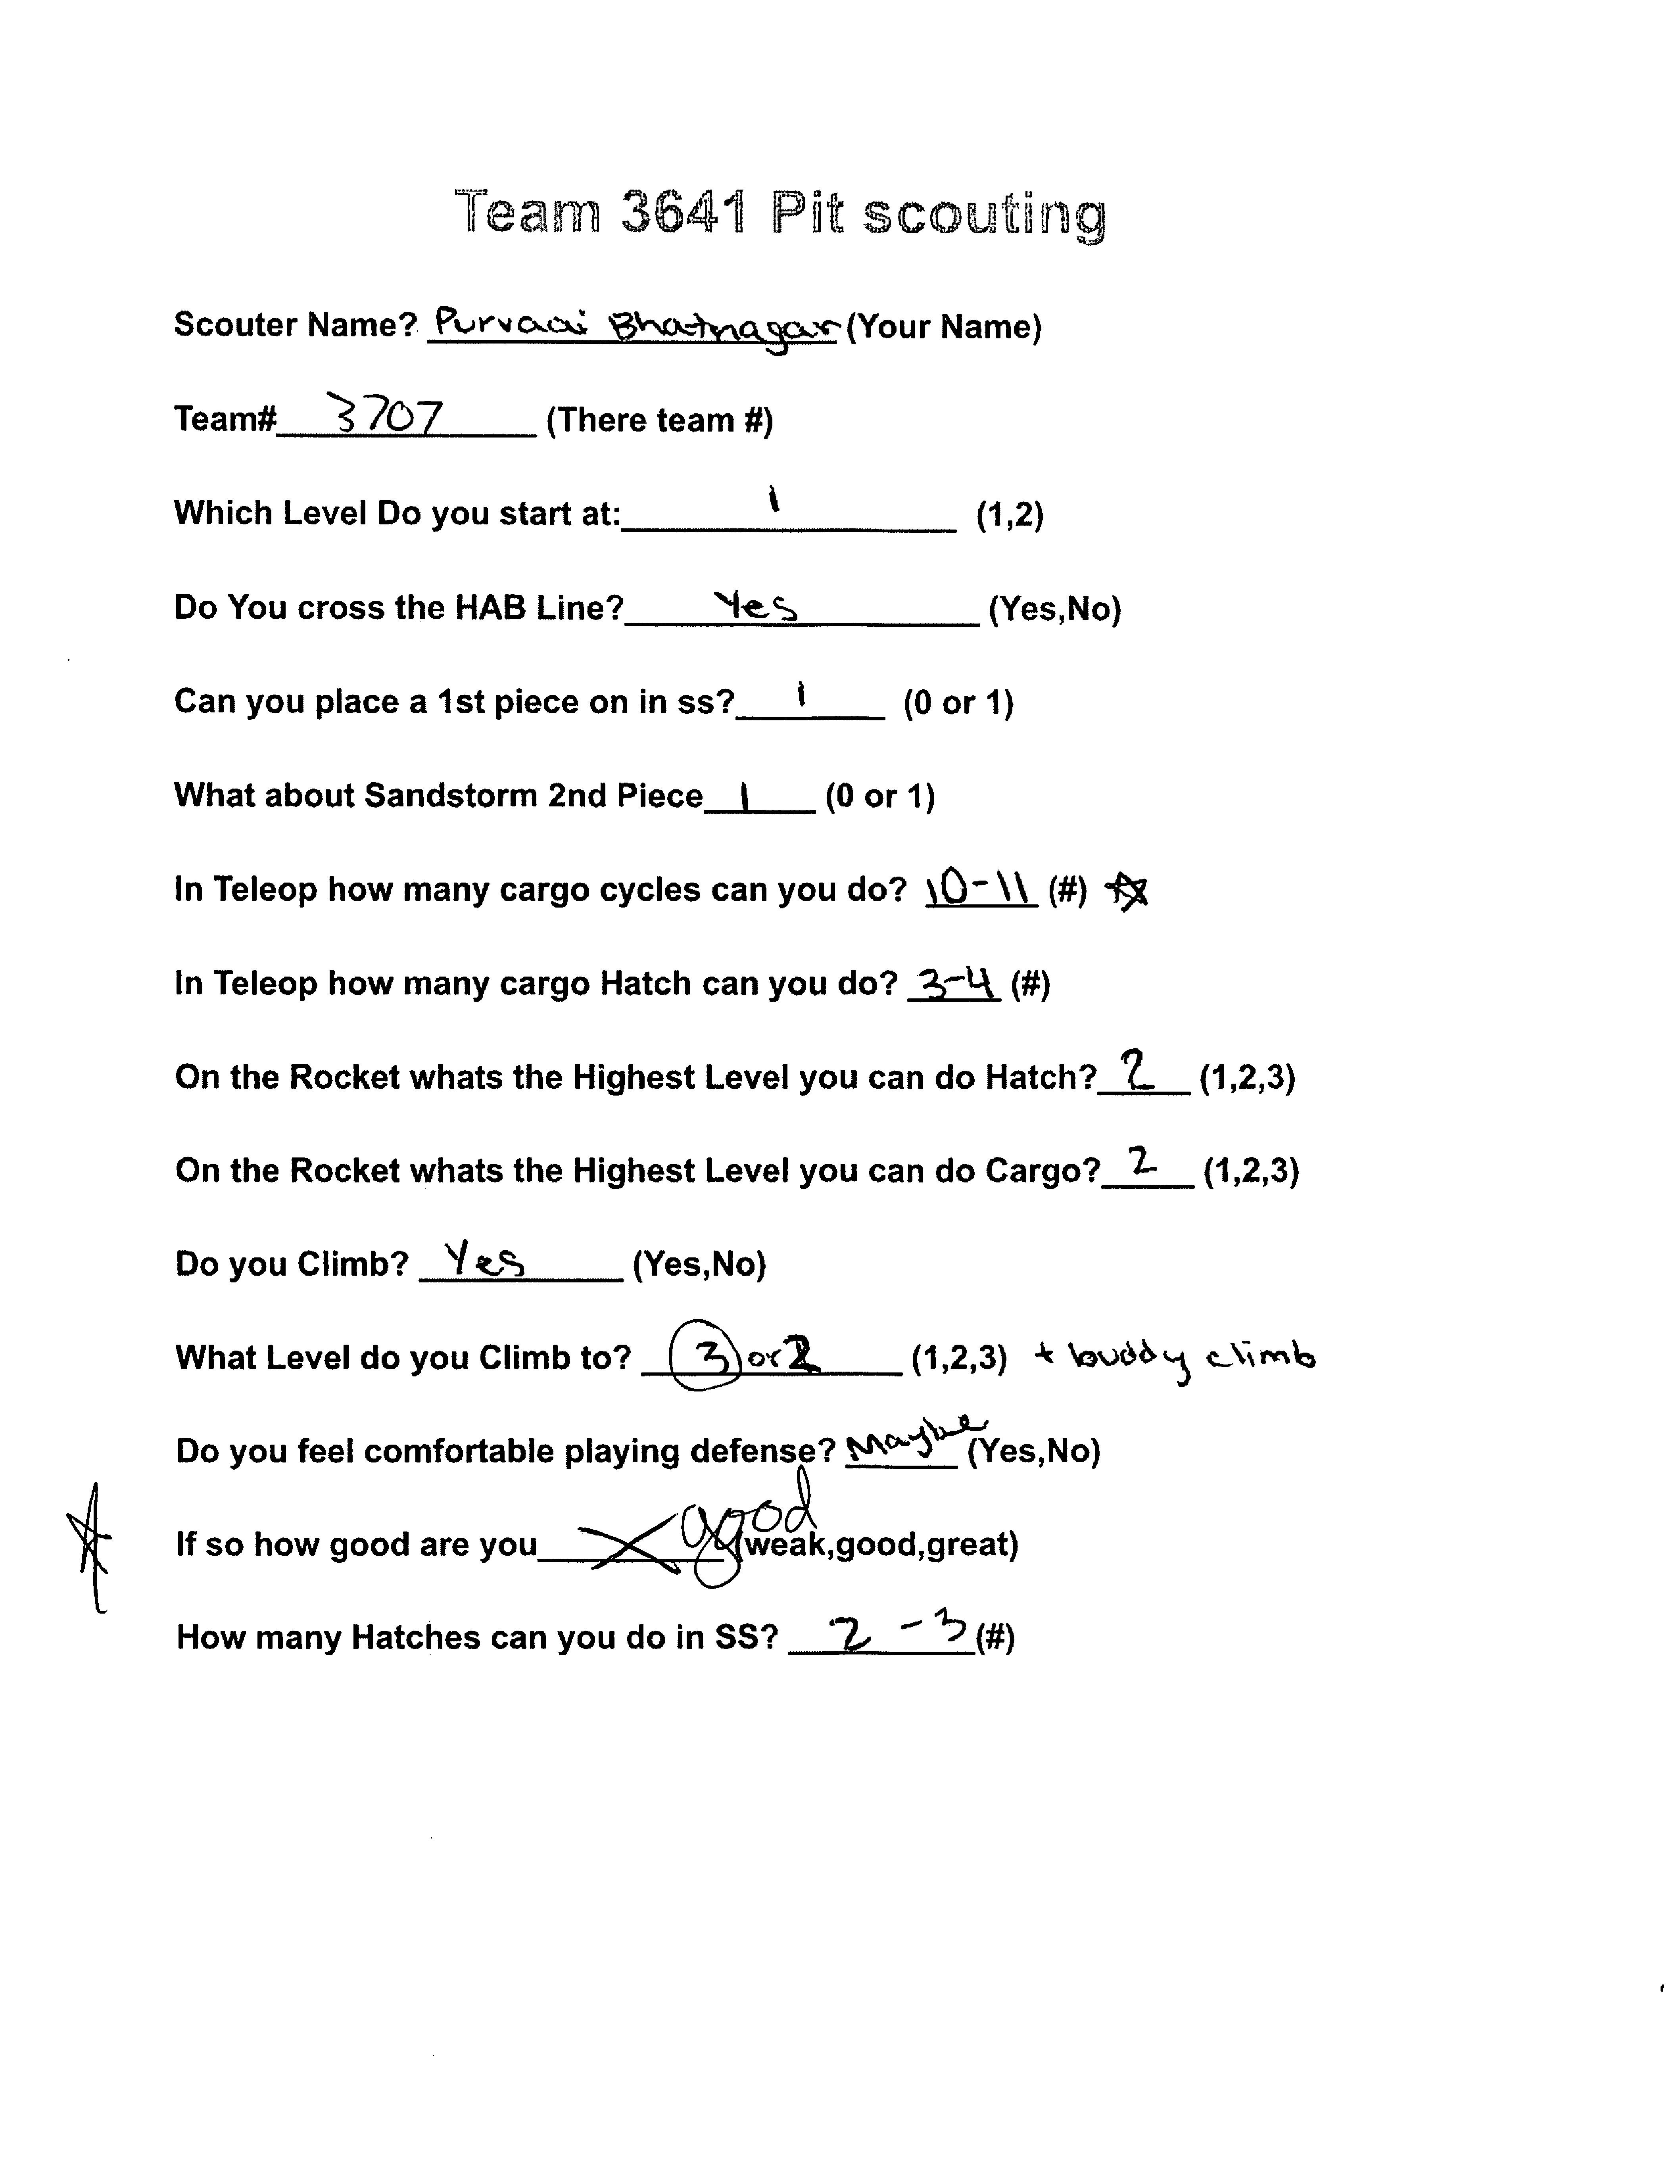 Team 3641 Pit scouting
Scouter Name? Purvaai Bhatnagar (Your Name)
Team# 3707 (There team #)
Which Level Do you start at: 1 (1,2)
Do You cross the HAB Line? Yes (Yes,No)
Can you place a 1st piece on in ss? 1 (0 or 1)
What about Sandstorm 2nd Piece 1 (0 or 1)
In Teleop how many cargo cycles can you do? 10-11 (#)
In Teleop how many cargo Hatch can you do? 3-4 (#)
On the Rocket whats the Highest Level you can do Hatch? 2 (1,2,3)
On the Rocket whats the Highest Level you can do Cargo? 2 (1,2,3)
Do you Climb? Yes (Yes,No)
What Level do you Climb to? 3 or 2 (1,2,3) + buddy climb
Do you feel comfortable playing defense? Maybe (Yes,No)
If so how good are you good (weak,good,great)
How many Hatches can you do in SS? 2 - 3 (#)